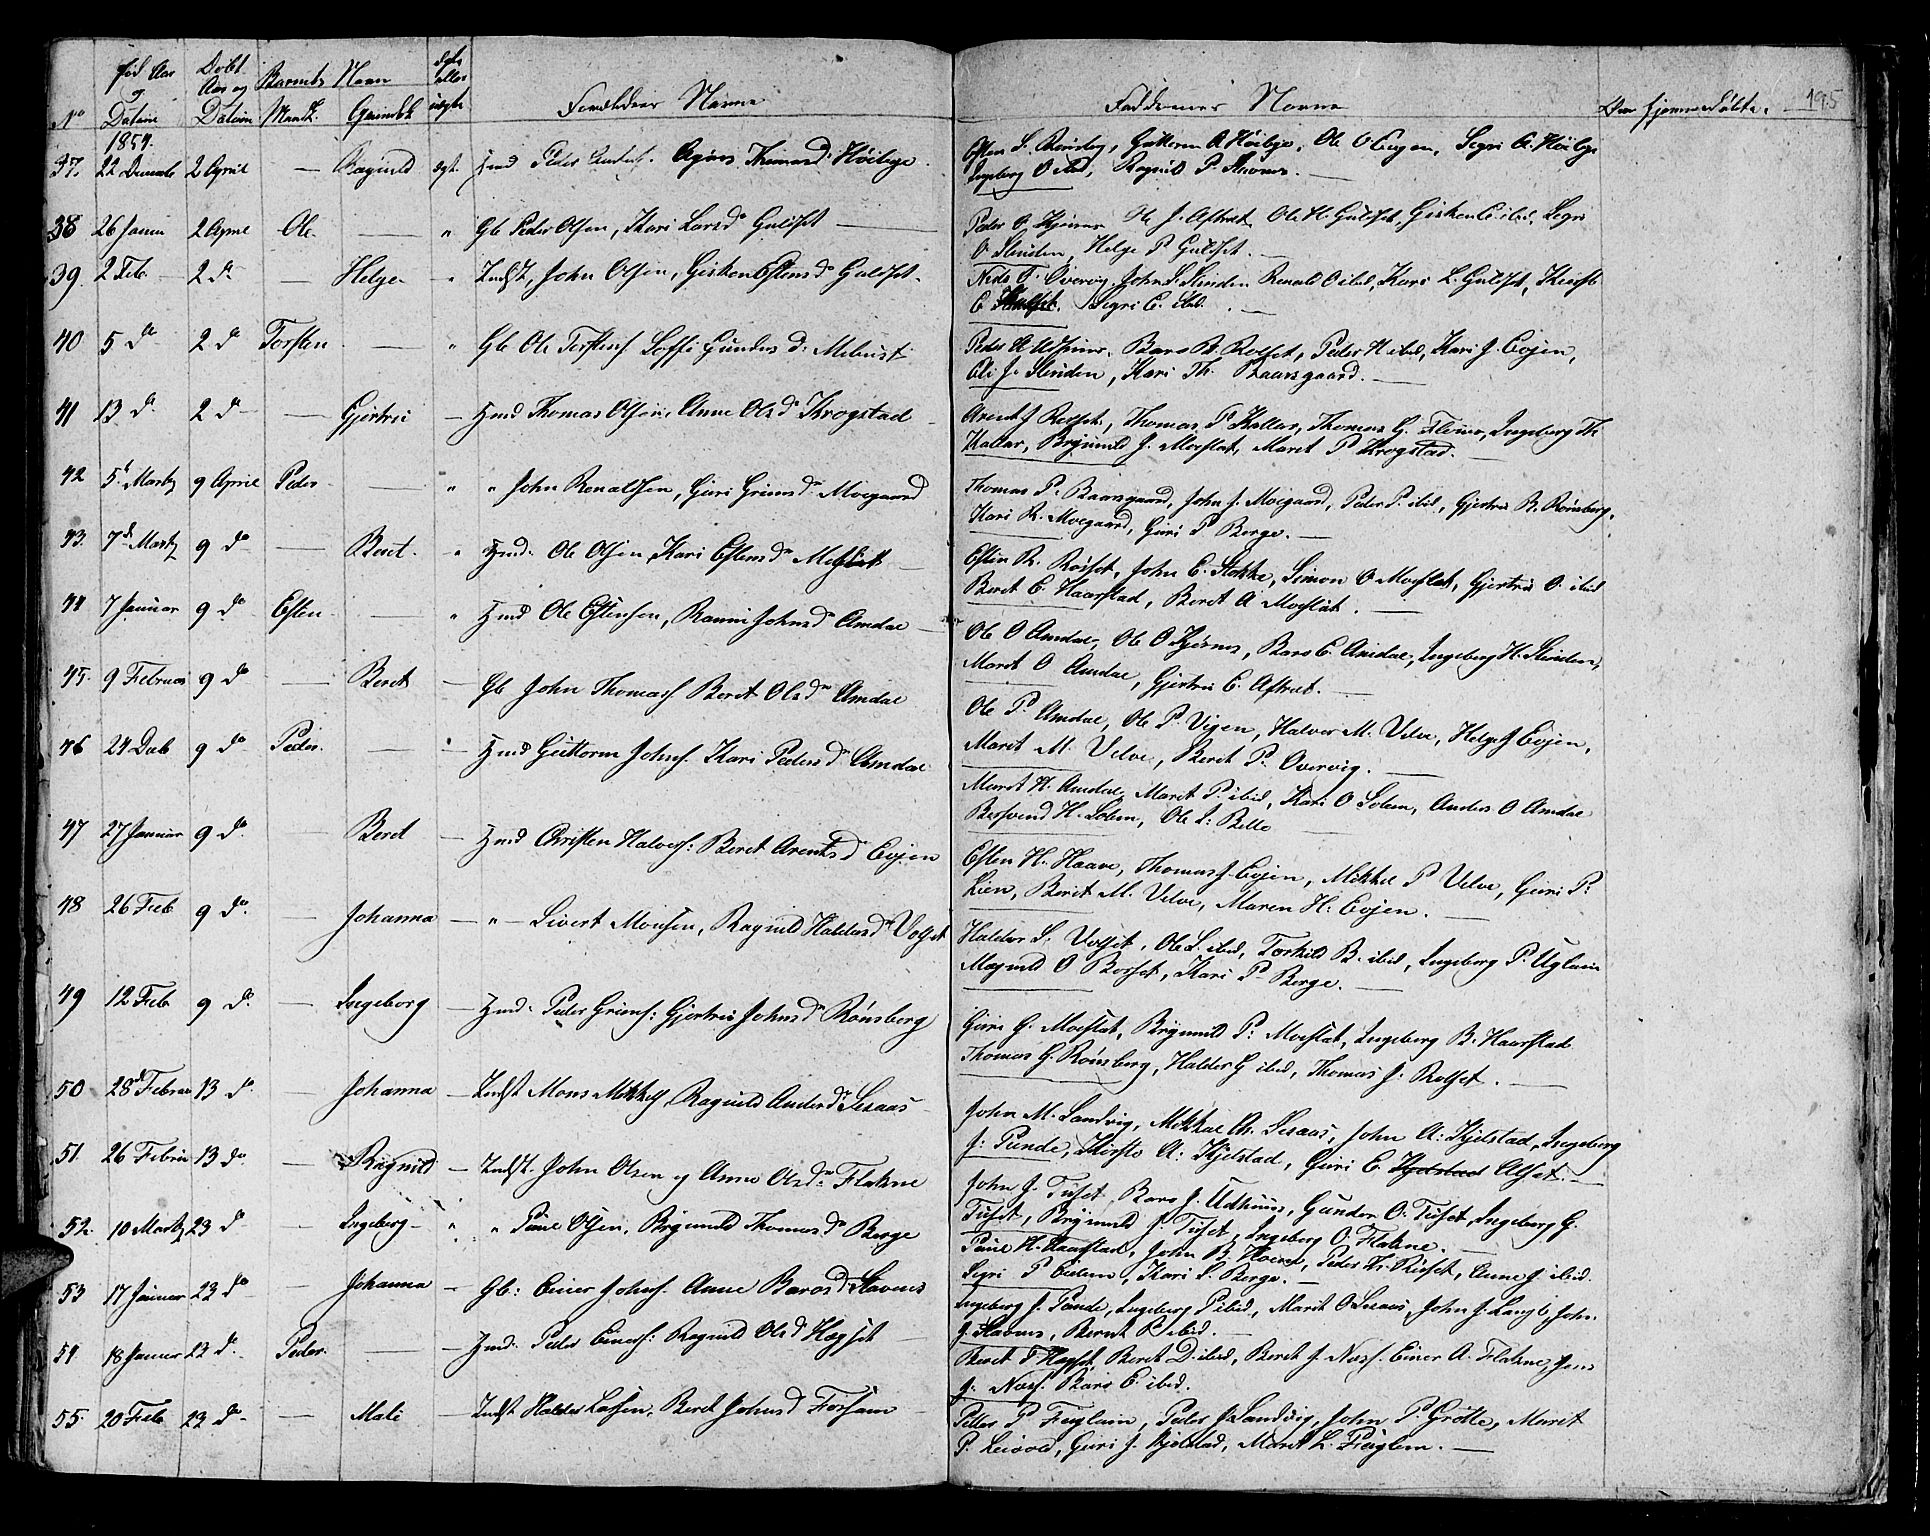 No
Død Aar og Datum
Døbt Aar og Datum
Barnets Navn
Mandk. Qvindek
ægte eller uægte
Forældrenes Navne
Faddernes Navne
Om hjemmedøbte.
195
1854.
37. 22 Decemb 2 April — Ragnild ægt. Hmd Peder Agnes Thomasd: Høilige
Esten S. Rønsbg, Guttorm A Høilige, Ole O Evjen, Segri A. Høilige
Ingeborg O ibid, Ragnild P. Stavnes. —
38 26 Janu 2 April Ole — " Gb Peder Olsen, Kari Larsd Gulset —
Peder O. Kjerre Ole J. Aftret, Ole H. Gulset, Gisken E ibid, Segri
O. Slinden, Helge P Gulset. —
39. 2 Feb. 2 do — Helge " Indst, John Olsen, Gisken Estensd Gulset.
Nils O. Overvig, John S. Slinden Renald O ibid, Kari L. Gulset, Kirsti
E. Segri E. ibid. —
40 5 do 2 do Torsten — " Gb Ole Torstens. Goffi Gundersd: Mebust
Peder H. Udhuus, Baro B. Rolset, Peder H ibid, Kari J. Evjen,
Eli J. Slinden, Kari Th. Baarsgaard. —
41 13 do 2 do — Gjertru — Hmd Thomas Olsen, Anne Olsd Krogstad
Arent J Rolset, Thomas P. Kallar, Thomas G. Flønes, Ingeborg Th
Kallar, Brynnild J. Moeslat, Maret P Krogstad. —
42 5 Martz 9 April Peder — " " John Renaldsen, Guri Grimsd Moegaard
Thomas P. Baarsgaard, John J. Moegaard, Peder P. ibid, Gjertru B. Rønsberg,
Kari R. Moegaard, Guri P Berge. —
43. 7 Martz 9 do — Beret. " Hmd: Ole Olsen Kari Estensd Moeslat —
Esten R. Rosset, John E. Stokke, Simon O Moeslat, Gjertru O. ibid
Beret E. Haarstad, Beret A Moeslat. —
44 7 Januar 9 do Esten — " Hmd Ole Estensen, Ranni Johnsd Amdal —
Ole O Amdal, Ole O Kjøsnes, Baro E. Amdal, Ingeborg H. Slinden,
Maret O Amdal, Gjertru E. Aftret. —
45. 9 Februar 9 do — Beret — Gb John Thomass Beret Olsd Amdal
Ole P. Amdal, Ole P. Vigen, Halvor M. Velve, Helge J Evjen,
Marit M. Velve, Beret P. Overvig. —
46 24 Deb 9 do Peder. — Hmd Guttorm Johns. Kari Pedersd Amdal
Maret H. Amdal, Maret P. ibid, Kari O Solem, Anders O Amdal
Bersvend H. Solem, Ole I: Bello
47 27 Januar 9 do. — Beret — Hmd Christen Halvors: Beret Arentsd Evjen
Esten H. Haave, Thomas J. Evjen, Mikkel P Velve, Guri P.
Lien, Beret M. Velve, Maren H: Evjen. —
48 26 Feb 9 do. — Johanna — " — Sivert Monsen, Ragnild Haldorsd Volset
Haldor S. Volset, Ole S. ibid, Torkild B. ibid, Ingeborg P. Uglum
Magnild O Borset, Kari P. Berge. —
49 12 Feb 9 do. — Ingeborg — Hmd: Peder Grims: Gjertru Johnsd Rønsberg
Guri G. Moeslat, Brynnild P. Moeslat, Ingeborg B. Haarstad
Thomas G. Rønsberg, Haldor G ibid, Thomas J. Rolset. —
50 28 Februar 13 do. — Johanna — Indst Mons Mikkels Ragnild Andersd Sesaas
John M. Sandvig, Mikkel Ch. Sesaas, John A: Kjelstad, Ingeborg
J: Punde, Kirsti A. Kjelstad, Guri E. Kjelstad Alset. —
51. 26 Februar 13 do. — Ragnild — Indst. John Olsen og Anne Olsd. Flakne
John J. Tuset, Baro J. Udhuus, Gunder O. Tuset, Ingeborg G.
Tuset, Brynnild J. Tuset, Ingeborg O. Flakne. —
52. 10 Martz 23 do — Ingeborg — " " Paul Olsen, Brynnild Thomasd Berge
Paul H. Haarstad, John B. Hoem, Peder H. Rosset, Anne J ibid.
Segri P. Eidem, Kari S. Berge. —
53 17 Januar 23 do — Johanna — Gb: Einer Johns. Anne Barosd Stavnes
Ingeborg J. Punde, Ingeborg P ibid, Marit O Sesaas, John J. Langli, John
J. Stavnes, Bernt P. ibid. —
54 18 Januar 23 do. Peder. — Hmd. Peder Einers: Ragnild Olsd Høgset —
Beret P Høgset, Beret D. ibid, Beret J. Næss. Einer A. Flakne, Jens
J. Næss. Baro E. ibid.
55. 20 Feb. 23 do. — Mali — Indst Haldor Larsen, Beret Johnsd Forsem
Peder P Fuglem, Peder J. Sandvig, John P. Grøtte, Marit
P. Leivold, Guri J. Kjelstad, Maret L. Fuglem. —